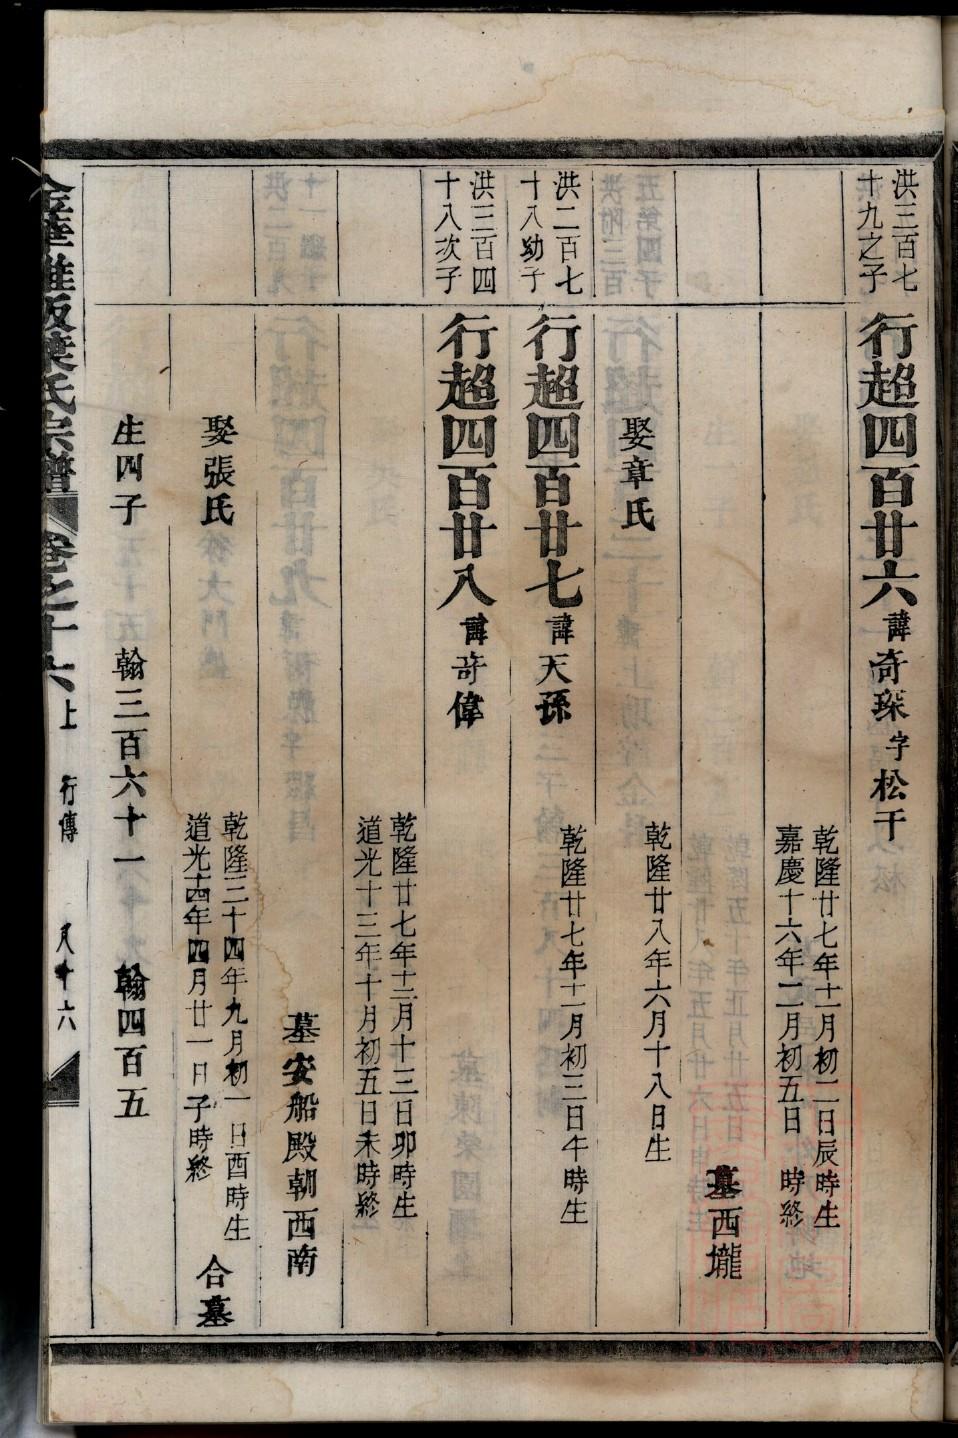 洪三百七
十九之子
行超四百廿六諱奇琛字松干
乾隆廿七年十一月初二日辰時生
嘉慶十六年二月初五日 時終
墓西壠
娶章氏
乾隆廿八年六月十八日生
洪二百七
十八幼子
行超四百廿七諱天孫
乾隆廿七年十二月初三日午時生
洪三百四
十八次子
行超四百廿八諱奇偉
乾隆廿七年十二月十三日卯時生
道光十三年十月初五日未時終
墓安船殿朝西南
娶張氏
乾隆三十四年九月初一日酉時生
道光十四年四月廿一日子時終
合墓
生四子 翰三百六十一 翰四百五
葉氏宗譜 卷之十六上 行傳 八十六